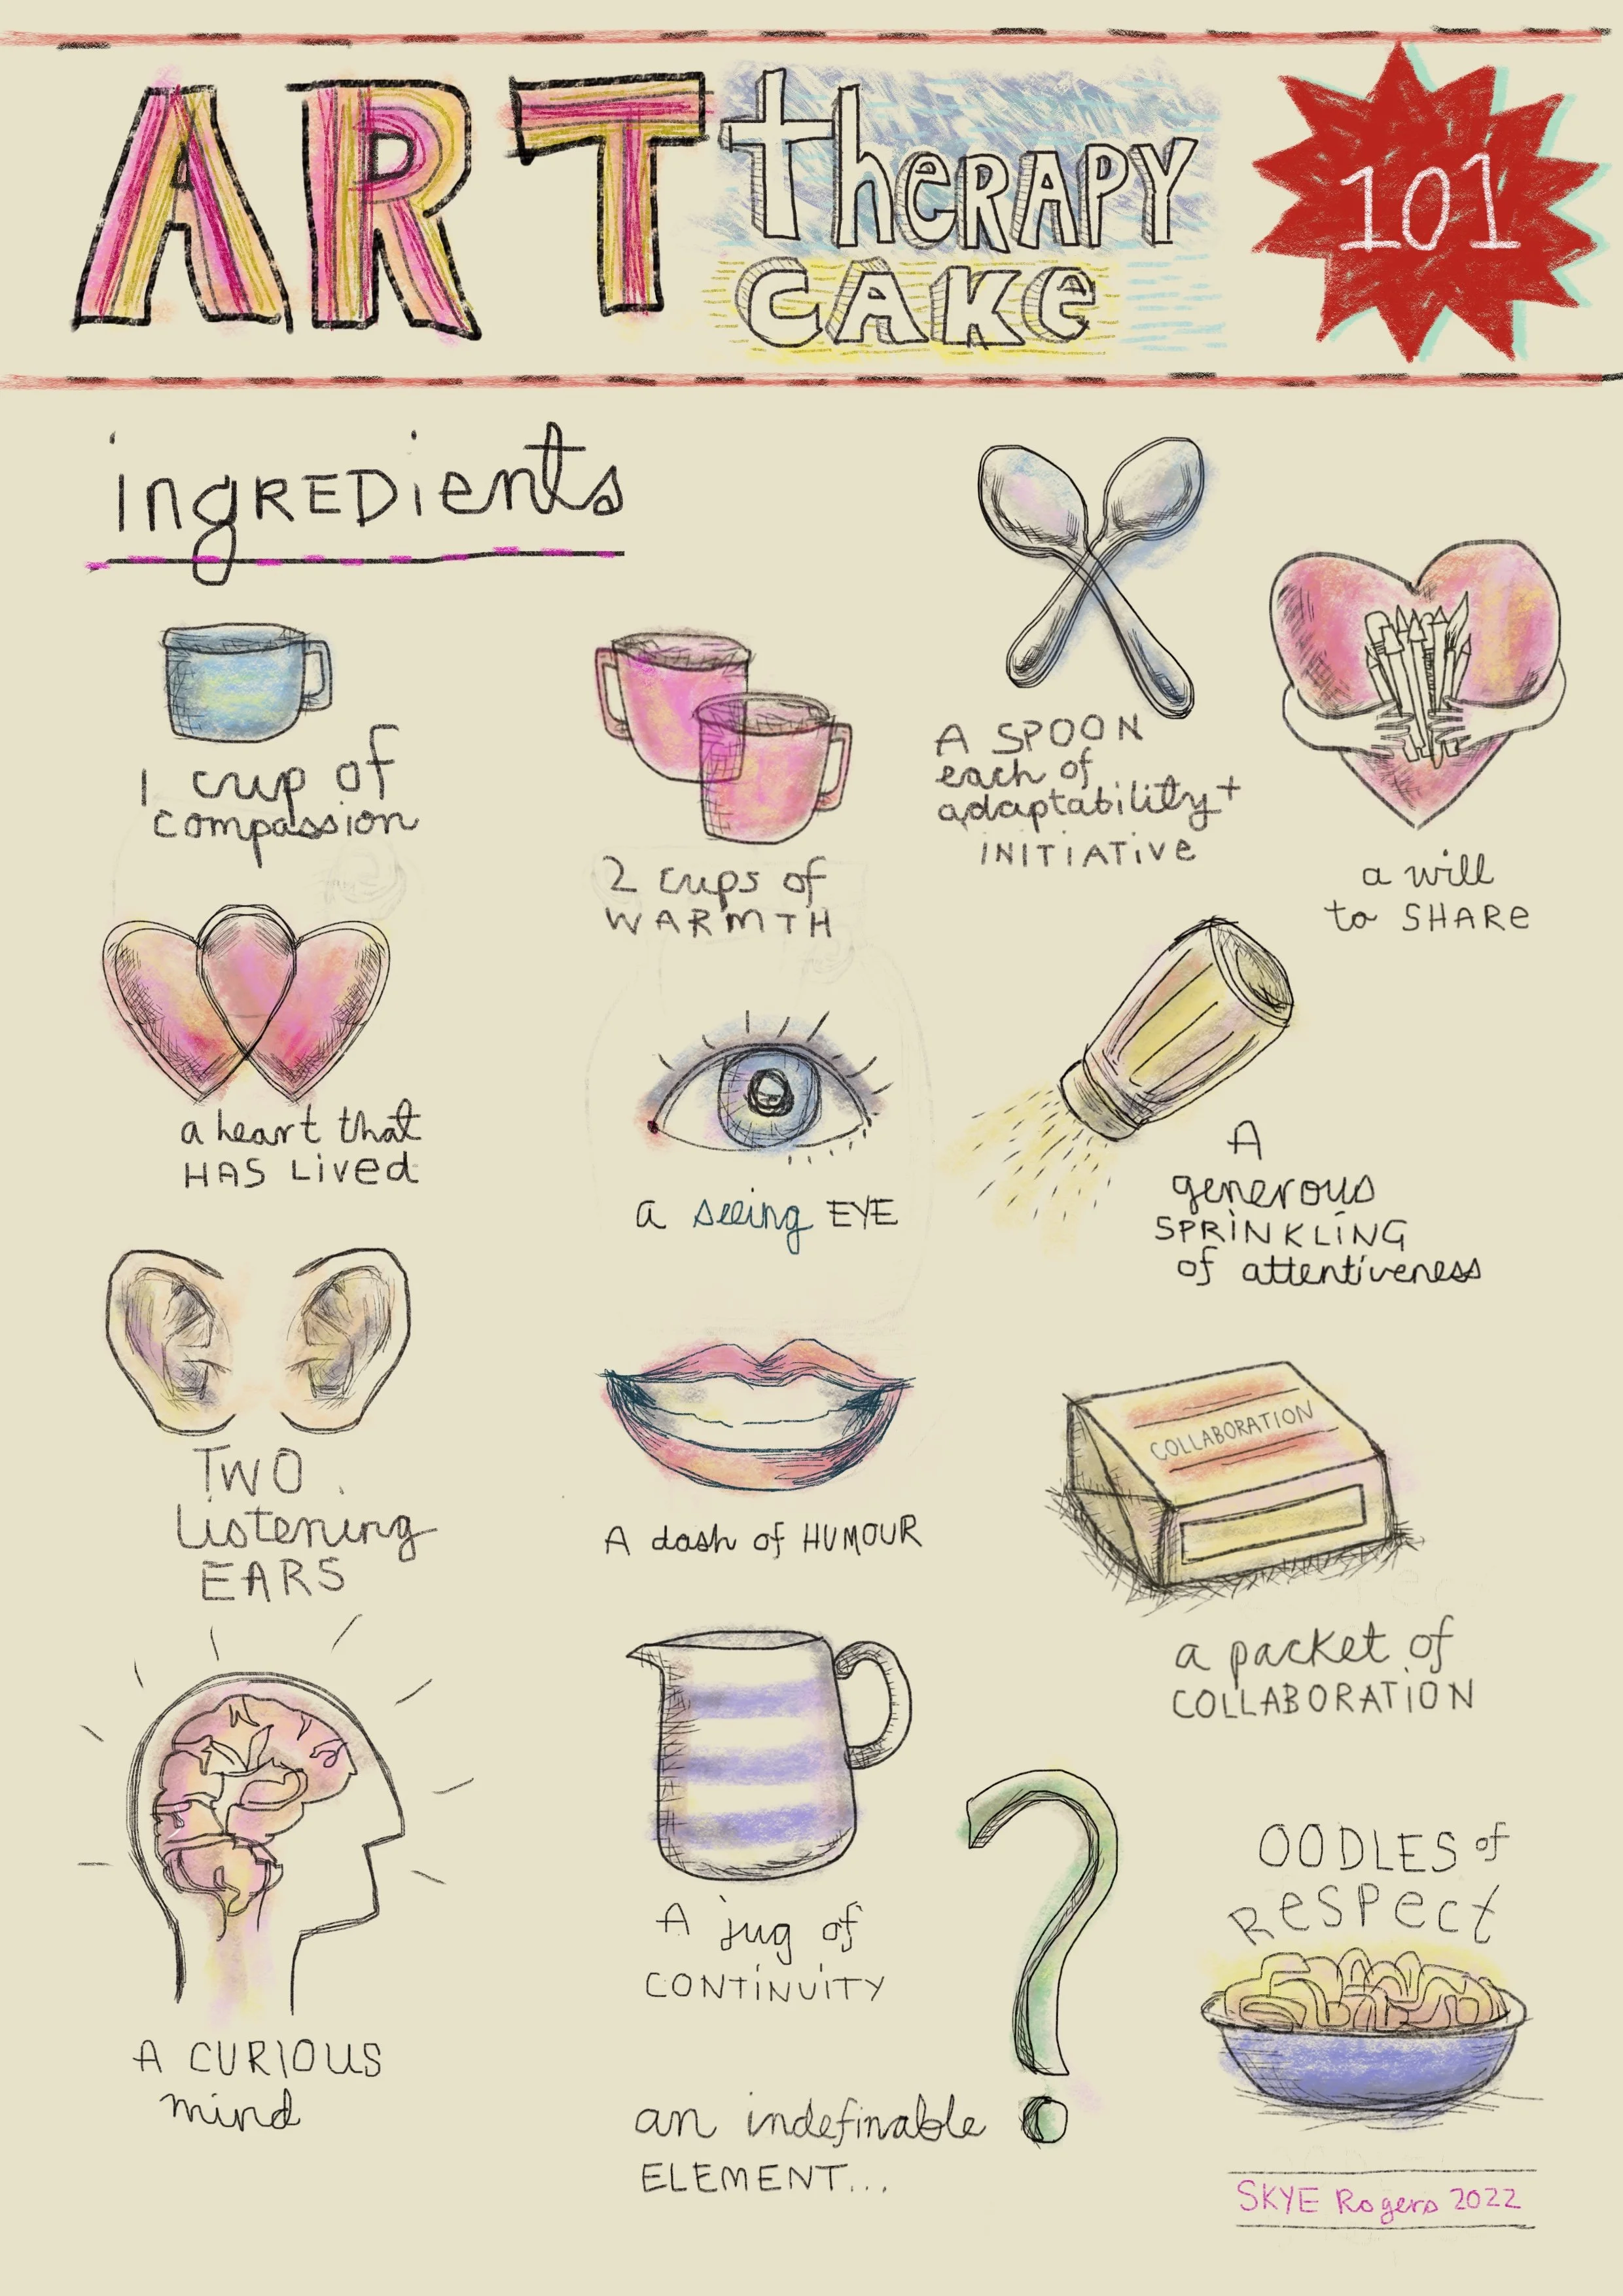 ART therapy
cake
101
ingredients
1 cup of
compassion
2 cups of
WARMTH
A SPOON
each of
adaptability +
INITIATIVE
a will
to SHARE
a heart that
HAS Lived
a seeing EYE
A
generous
SPRINKLING
of attentiveness
TWO
Listening
EARS
A dash of HUMOUR
COLLABORATION
a packet of
COLLABORATION
A CURIOUS
mind
A jug of
CONTINUITY
an indefinable
ELEMENT...
?
OODLES of
RESPECT
SKYE Rogers 2022